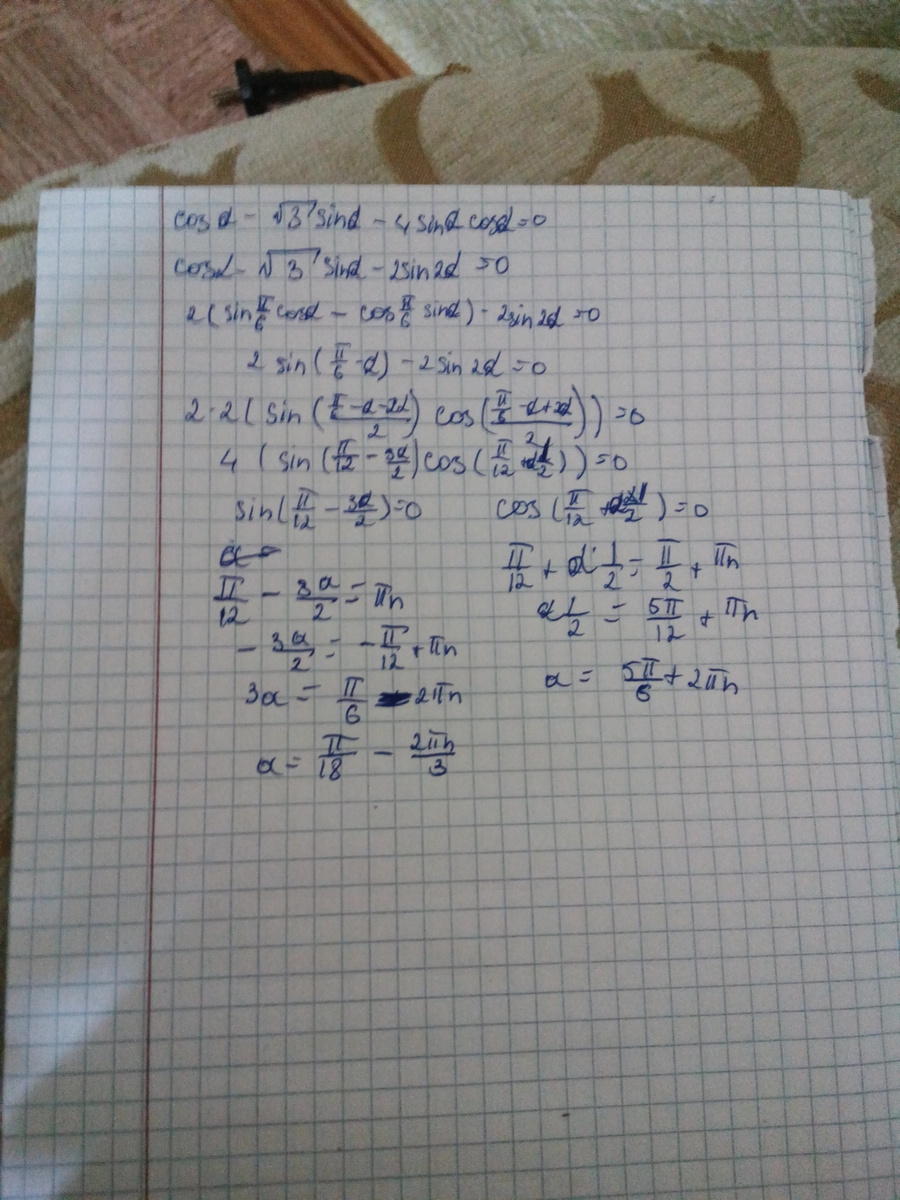 cos α - √3 sin α - 4 sin α cos α = 0
cos α - √3 sin α - 2 sin 2α = 0
2 ( sin π/6 cos α - cos π/6 sin α ) - 2 sin 2α = 0
2 sin ( π/6 - α ) - 2 sin 2α = 0
2 · 2 ( sin ( (π/6 - α - 2α)/2 ) cos ( (π/6 - α + 2α)/2 ) ) = 0
4 ( sin ( π/12 - 3α/2 ) cos ( π/12 + α 1/2 ) ) = 0
sin ( π/12 - 3α/2 ) = 0 cos ( π/12 + α 1/2 ) = 0
π/12 - 3α/2 = πn
- 3α/2 = - π/12 + πn
3α = π/6 - 2πn
α = π/18 - 2πn/3
π/12 + α · 1/2 = π/2 + πn
α 1/2 = 5π/12 + πn
α = 5π/6 + 2πn